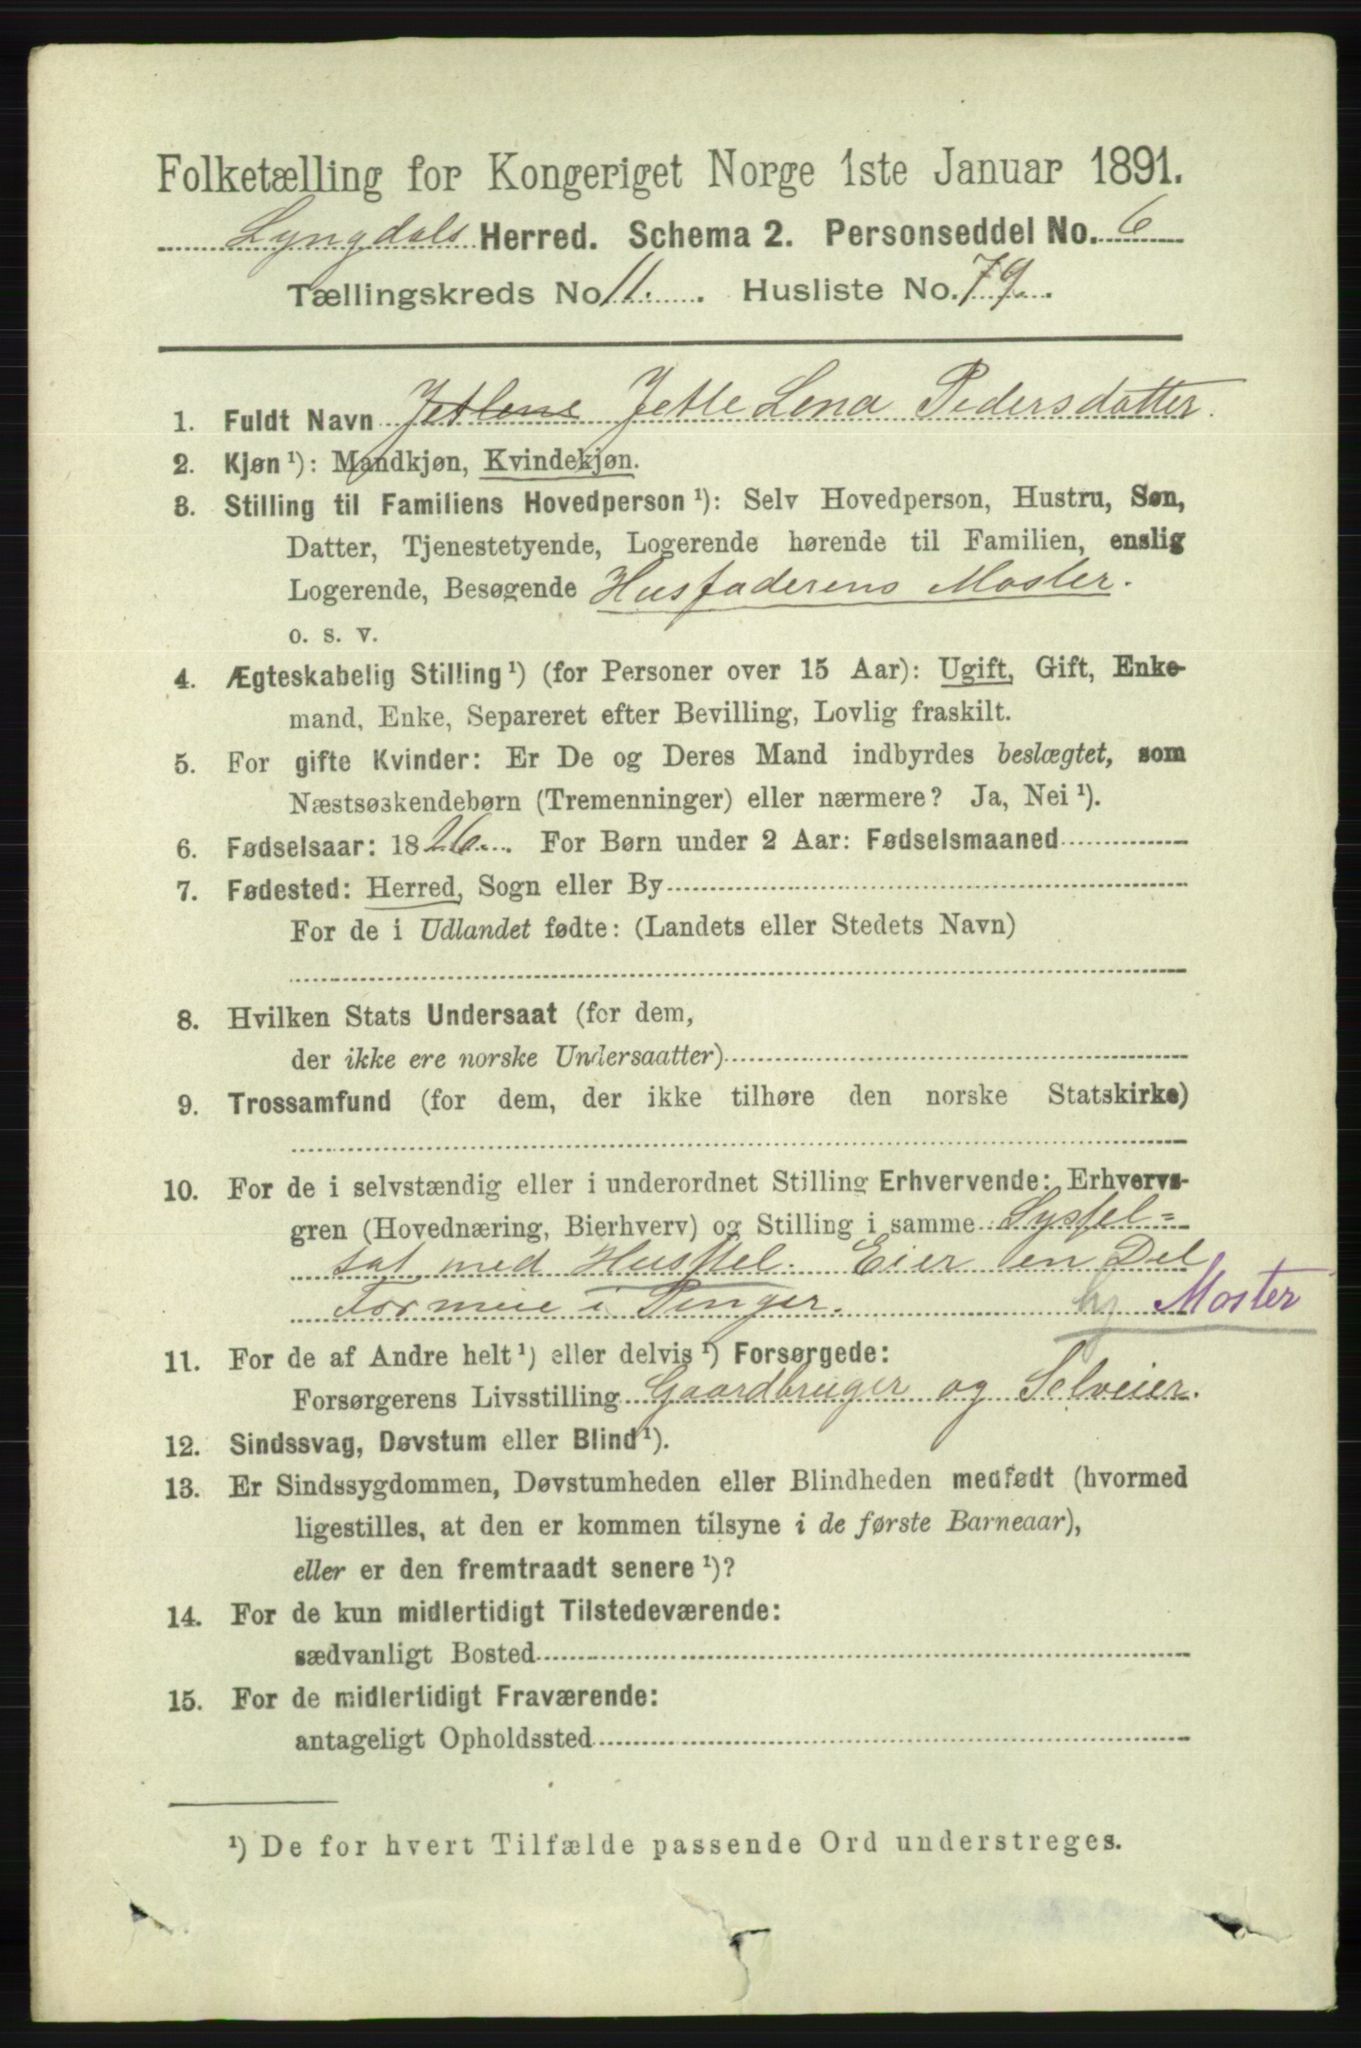 Folketælling for Kongeriget Norge 1ste Januar 1891.
Lyngdals Herred. Schema 2. Personseddel No. 6
Tællingskreds No 11. Husliste No. 79.
1. Fuldt Navn Jetlene Jetle Lena Pedersdatter.
2. Kjøn ¹): Mandkjøn, Kvindekjøn.
3. Stilling til Familiens Hovedperson ¹): Selv Hovedperson, Hustru, Søn,
Datter, Tjenestetyende, Logerende hørende til Familien, enslig
Logerende, Besøgende Husfaderens Moster.
o. s. v.
4. Ægteskabelig Stilling ¹) (for Personer over 15 Aar): Ugift, Gift, Enke-
mand, Enke, Separeret efter Bevilling, Lovlig fraskilt.
5. For gifte Kvinder: Er De og Deres Mand indbyrdes beslægtet, som
Næstsøskendebørn (Tremenninger) eller nærmere? Ja, Nei ¹).
6. Fødselsaar: 1826. For Børn under 2 Aar: Fødselsmaaned
7. Fødested: Herred, Sogn eller By
For de i Udlandet fødte: (Landets eller Stedets Navn)
8. Hvilken Stats Undersaat (for dem,
der ikke ere norske Undersaatter)
9. Trossamfund (for dem, der ikke tilhøre den norske Statskirke)
10. For de i selvstændig eller i underordnet Stilling Erhvervende: Erhvervs-
gren (Hovednæring, Bierhverv) og Stilling i samme Syssel=
sat med Husstel. Eier en Del
Formue i Penger. hj Moster
11. For de af Andre helt ¹) eller delvis ¹) Forsørgede:
Forsørgerens Livsstilling Gaardbruger og Selveier.
12. Sindssvag, Døvstum eller Blind ¹).
13. Er Sindssygdommen, Døvstumheden eller Blindheden medfødt (hvormed
ligestilles, at den er kommen tilsyne i de første Barneaar),
eller er den fremtraadt senere ¹)?
14. For de kun midlertidigt Tilstedeværende:
sædvanligt Bosted
15. For de midlertidigt Fraværende:
antageligt Opholdssted
¹) De for hvert Tilfælde passende Ord understreges.